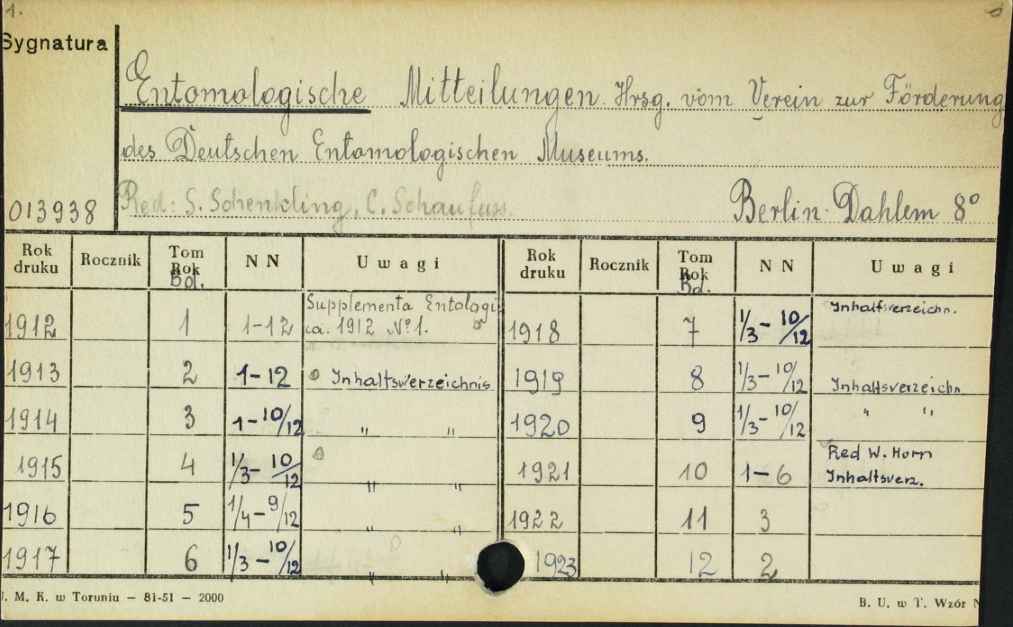 1.
Sygnatura
Entomologische Mitteilungen. Hrsg. vom Verein zur Förderung
des Deutschen Entomologischen Museums.
013938 Red: S. Schenkling, C. Schaufuss. Berlin-Dahlem 8°
Rok druku Rocznik Tom Rok Bd. NN Uwagi Rok druku Rocznik Tom Rok Bd. NN Uwagi
1912 1 1-12 Supplementa Entologi ca. 1912 Nº1. 1918 7 1/3-10/12 Inhaltsverzeichn.
1913 2 1-12 Inhaltsverzeichnis 1919 8 1/3-10/12 Inhaltsverzeichn
1914 3 1-10/12 " " 1920 9 1/3-10/12 " "
1915 4 1/3-10/12 " " 1921 10 1-6 Red W. Horn Inhaltsverz.
1916 5 1/4-9/12 " " 1922 11 3
1917 6 1/3-10/12 " " 1923 12 2
U. M. K. w Toruniu — 81-51 — 2000 B. U. w T. Wzór N